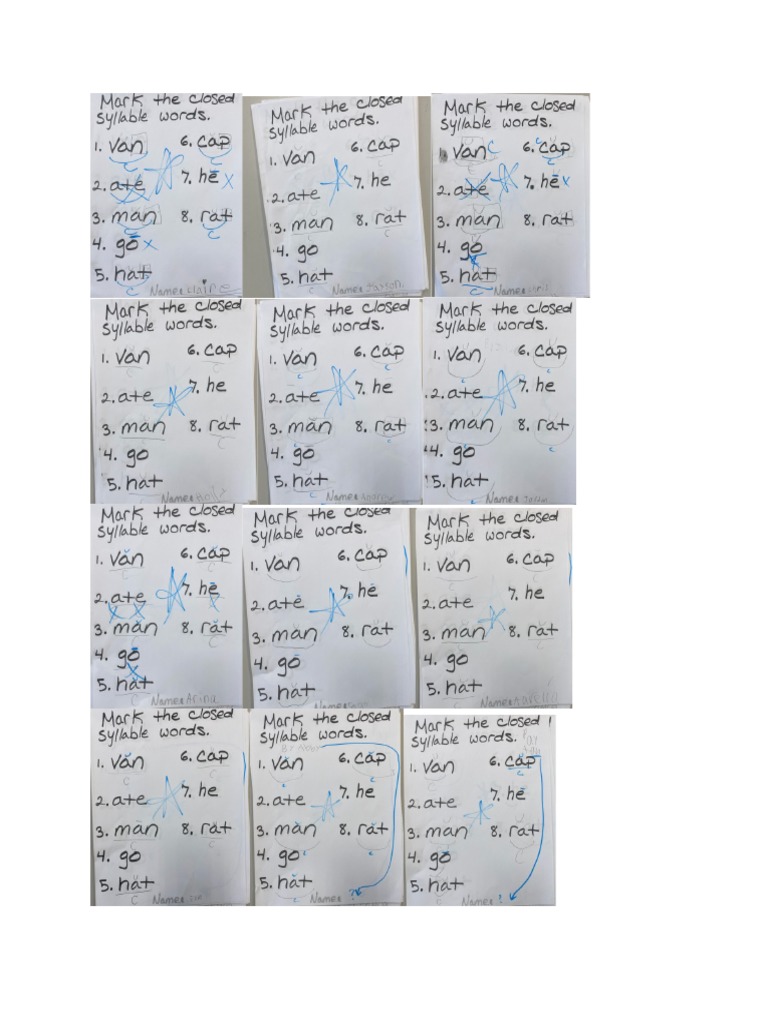 Mark the closed
syllable words.
1. van 6. cap
2. ate 7. he
3. man 8. rat
4. go
5. hat
Name: Claire
Mark the closed
syllable words.
1. van 6. cap
2. ate 7. he
3. man 8. rat
4. go
5. hat
Name:
Mark the closed
syllable words.
van 6. cap
2. ate 7. he
3. man 8. rat
4. go
5. hat
Name:
Mark the closed
syllable words.
1. van 6. cap
2. ate 7. he
3. man 8. rat
4. go
5. hat
Name:
Mark the closed
syllable words.
1. van 6. cap
2. ate 7. he
3. man 8. rat
4. go
5. hat
Name: Andrew
Mark the closed
syllable words.
1. van 6. cap
2. ate 7. he
3. man 8. rat
4. go
5. hat
Name:
Mark the closed
syllable words.
1. van 6. cap
2. ate 7. he
3. man 8. rat
4. go
5. hat
Name:
Mark the closed
syllable words.
1. van 6. cap
2. ate 7. he
3. man 8. rat
4. go
5. hat
Name:
Mark the closed
syllable words.
1. van 6. cap
2. ate 7. he
3. man 8. rat
4. go
5. hat
Name:
Mark the closed
syllable words.
1. van 6. cap
2. ate 7. he
3. man 8. rat
4. go
5. hat
Name:
Mark the closed
syllable words.
1. van 6. cap
2. ate 7. he
3. man 8. rat
4. go
5. hat
Name: ?
Mark the closed
syllable words.
1. van 6. cap
2. ate 7. he
3. man 8. rat
4. go
5. hat
Name: ?